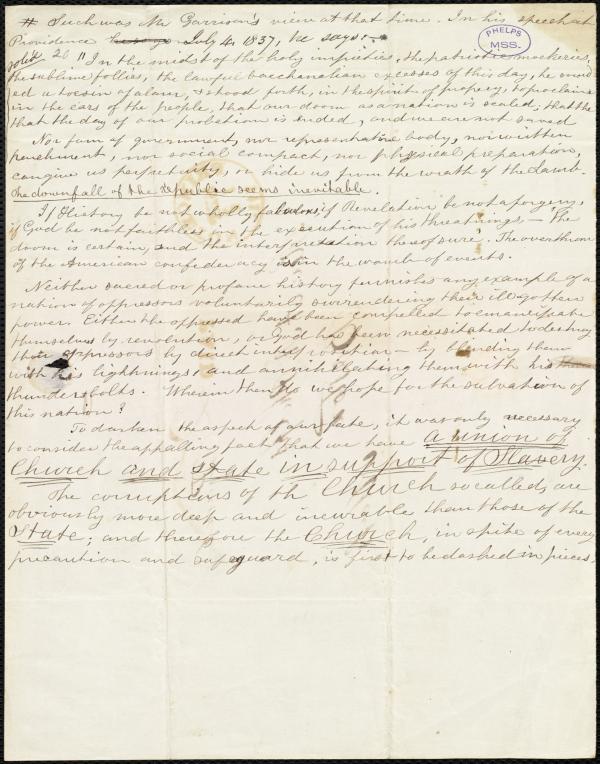 # Such was Mr Garrison's view at that time. In his speech at
Providence July 4, 1837, he says:
PHELPS
MSS.
solid 20 "In the midst of the holy impieties, the patriotic mockeries,
the sublime follies, the lawful bacchanalian excesses of this day, he
ed a tocsin of alarm, & stood forth, in the spirit of propecy, to proclaim
in the ears of the people, that our doom as a nation is sealed; that the
that the day of our probation is ended, and we are not saved
Nor form of government, nor representative body, nor written
parchment, nor social compact, nor physical preparation,
can give us perpetuity, or hide us from the wrath of the Lamb.
The downfall of the republic seems inevitable.
If History be not wholly fabulous, if Revelation be not a forgery,
if God be not faithless in the execution of his threatnings, — the
doom is certain, and the interpretation thereof sure. The overthrow
of the American confederacy is in the womb of events.
Neither sacred or profane history furnishes any example of a
nation of oppressors voluntarily surrendering their ill gotten
power. Either the oppressed have been compelled to emancipate
themselves by revolution, or God has been necessitated to destroy
their oppressors by direct interposition — by blinding them
with his lightnings, and annihilating them with his
thunderbolts. Wherein then do we hope for the salvation of
this nation?
To darken the aspect of our fate, it was only necessary
to consider the appalling fact that we have a union of
Church and state in support of Slavery.
The corruptions of th Church so called, are
obviously more deep and incurable than those of the
State; and therefore the Church, in spite of every
precaution and safeguard, is first to be dashed in pieces.